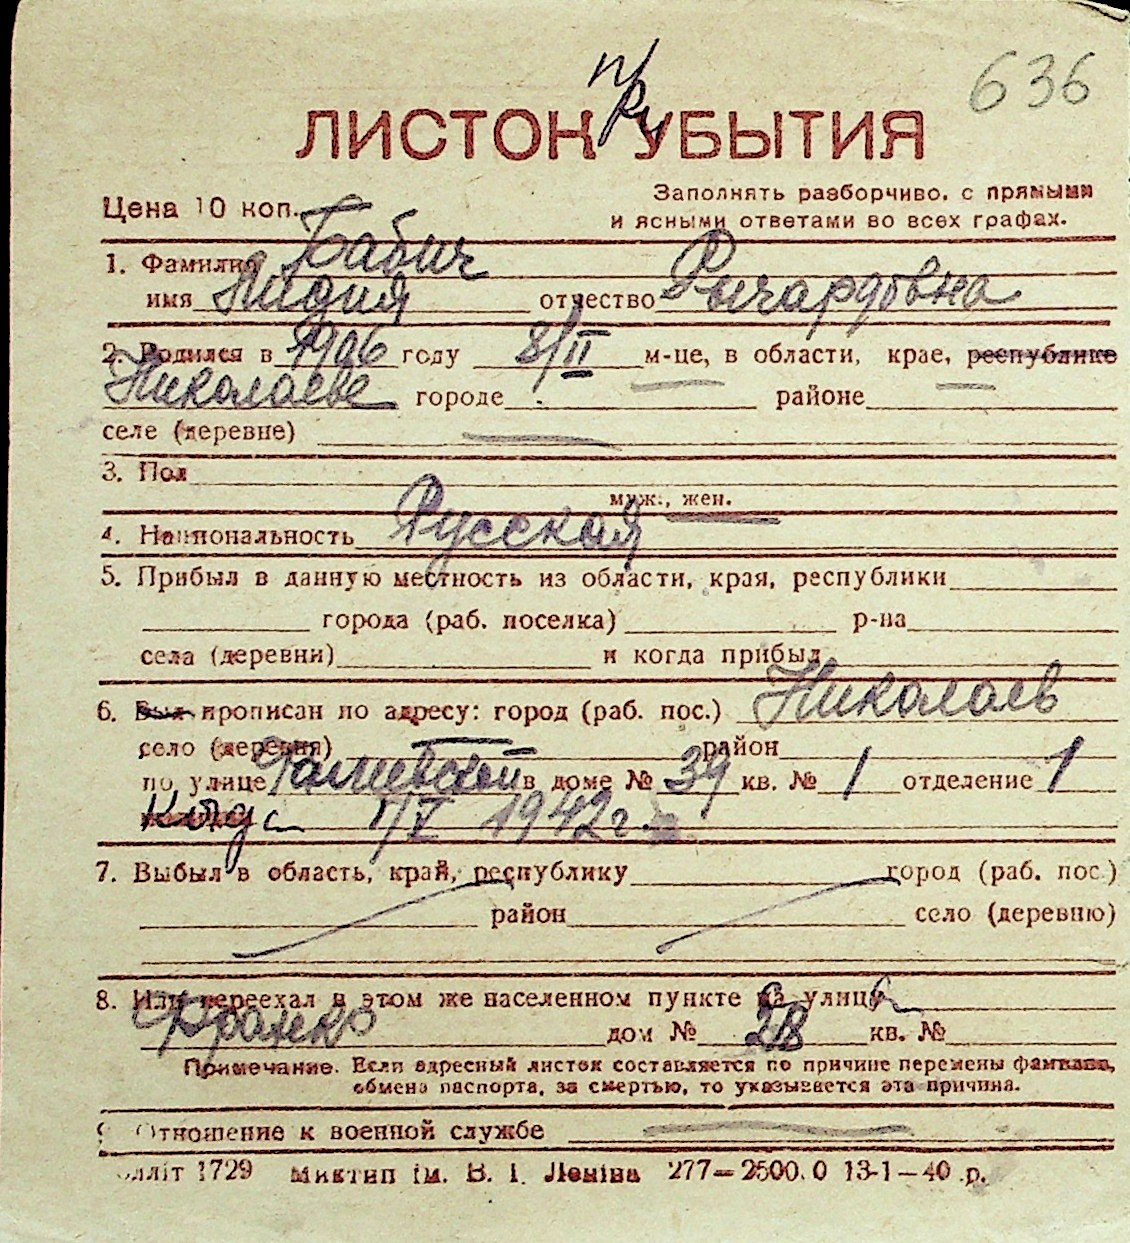 636
при
ЛИСТОК УБЫТИЯ
Цена 10 коп.
Заполнять разборчиво, с прямыми
и ясными ответами во всех графах.
1. Фамилия Бабич
имя Лидия отчество Рычардовна
2. Родился в 1906 году 8/II м-це, в области, крае, республике
Николаеве городе районе
селе (деревне)
3. Пол
муж., жен.
4. Национальность Русская
5. Прибыл в данную местность из области, края, республики
города (раб. поселка) р-на
села (деревни) и когда прибыл
6. Был прописан по адресу: город (раб. пос.) Николаев
село (деревня) район
по улице в доме № 39 кв. № 1 отделение 1
1/V 1942 г.
7. Выбыл в область, край, республику город (раб. пос.)
район село (деревню)
8. Или переехал в этом же населенном пункте на улицу
Франко дом № 28 кв. №
Примечание. Если адресный листок составляется по причине перемены фамилии,
обмена паспорта, за смертью, то указывается эта причина.
9. Отношение к военной службе
олліт 1729 Миктип ім. В. І. Леніна 277—2500.0 13-1—40 р.